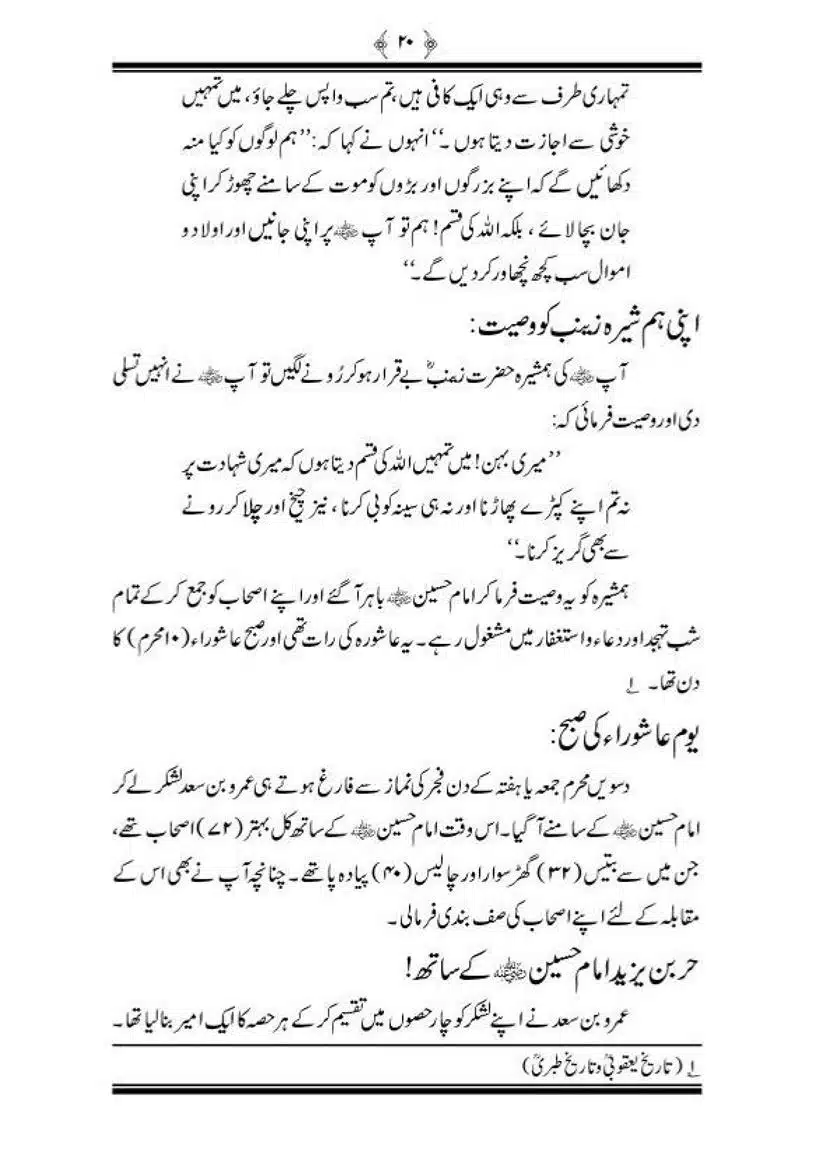 ۲۰
تمہاری طرف سے وہی ایک کافی ہیں، تم سب واپس چلے جاؤ، میں تمہیں
خوشی سے اجازت دیتا ہوں ۔‘‘ انہوں نے کہا کہ: ’’ہم لوگوں کو کیا منہ
دکھائیں گے کہ اپنے بزرگوں اور بڑوں کو موت کے سامنے چھوڑ کر اپنی
جان بچا لائے ، بلکہ اللہ کی قسم! ہم تو آپ ﷜ پر اپنی جانیں اور اولاد و
اموال سب کچھ نچھاور کردیں گے۔‘‘
اپنی ہم شیرہ زینب کو وصیت:
آپ ﷜ کی ہمشیرہ حضرت زینبؓ بے قرار ہوکر رُونے لگیں تو آپ ﷜ نے انہیں تسلی
دی اور وصیت فرمائی کہ:
’’میری بہن! میں تمہیں اللہ کی قسم دیتا ہوں کہ میری شہادت پر
نہ تم اپنے کپڑے پھاڑنا اور نہ ہی سینہ کوبی کرنا ، نیز چیخ اور چلا کر رونے
سے بھی گریز کرنا ۔‘‘
ہمشیرہ کو یہ وصیت فرما کر امام حسین ﷜ باہر آگئے اور اپنے اصحاب کو جمع کرکے تمام
شب تہجد اور دعاء و استغفار میں مشغول رہے۔ یہ عاشورہ کی رات تھی اور صبح عاشوراء (۱۰ محرم) کا
دن تھا۔ ۱؎
یوم عاشوراء کی صبح:
دسویں محرم جمعہ یا ہفتہ کے دن فجر کی نماز سے فارغ ہوتے ہی عمرو بن سعد لشکر لے کر
امام حسین ﷜ کے سامنے آگیا۔ اس وقت امام حسین ﷜ کے ساتھ کل بہتر (۷۲) اصحاب تھے،
جن میں سے بتیس (۳۲) گھڑ سوار اور چالیس (۴۰) پیادہ پا تھے۔ چنانچہ آپ نے بھی اس کے
مقابلہ کے لئے اپنے اصحاب کی صف بندی فرمالی۔
حر بن یزید امام حسین ﷜ کے ساتھ!
عمرو بن سعد نے اپنے لشکر کو چار حصوں میں تقسیم کرکے ہر حصہ کا ایک امیر بنالیا تھا۔
۱؎ (تاریخ یعقوبیؒ و تاریخ طبریؒ)